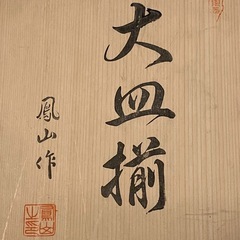 大皿揃
鳳山作